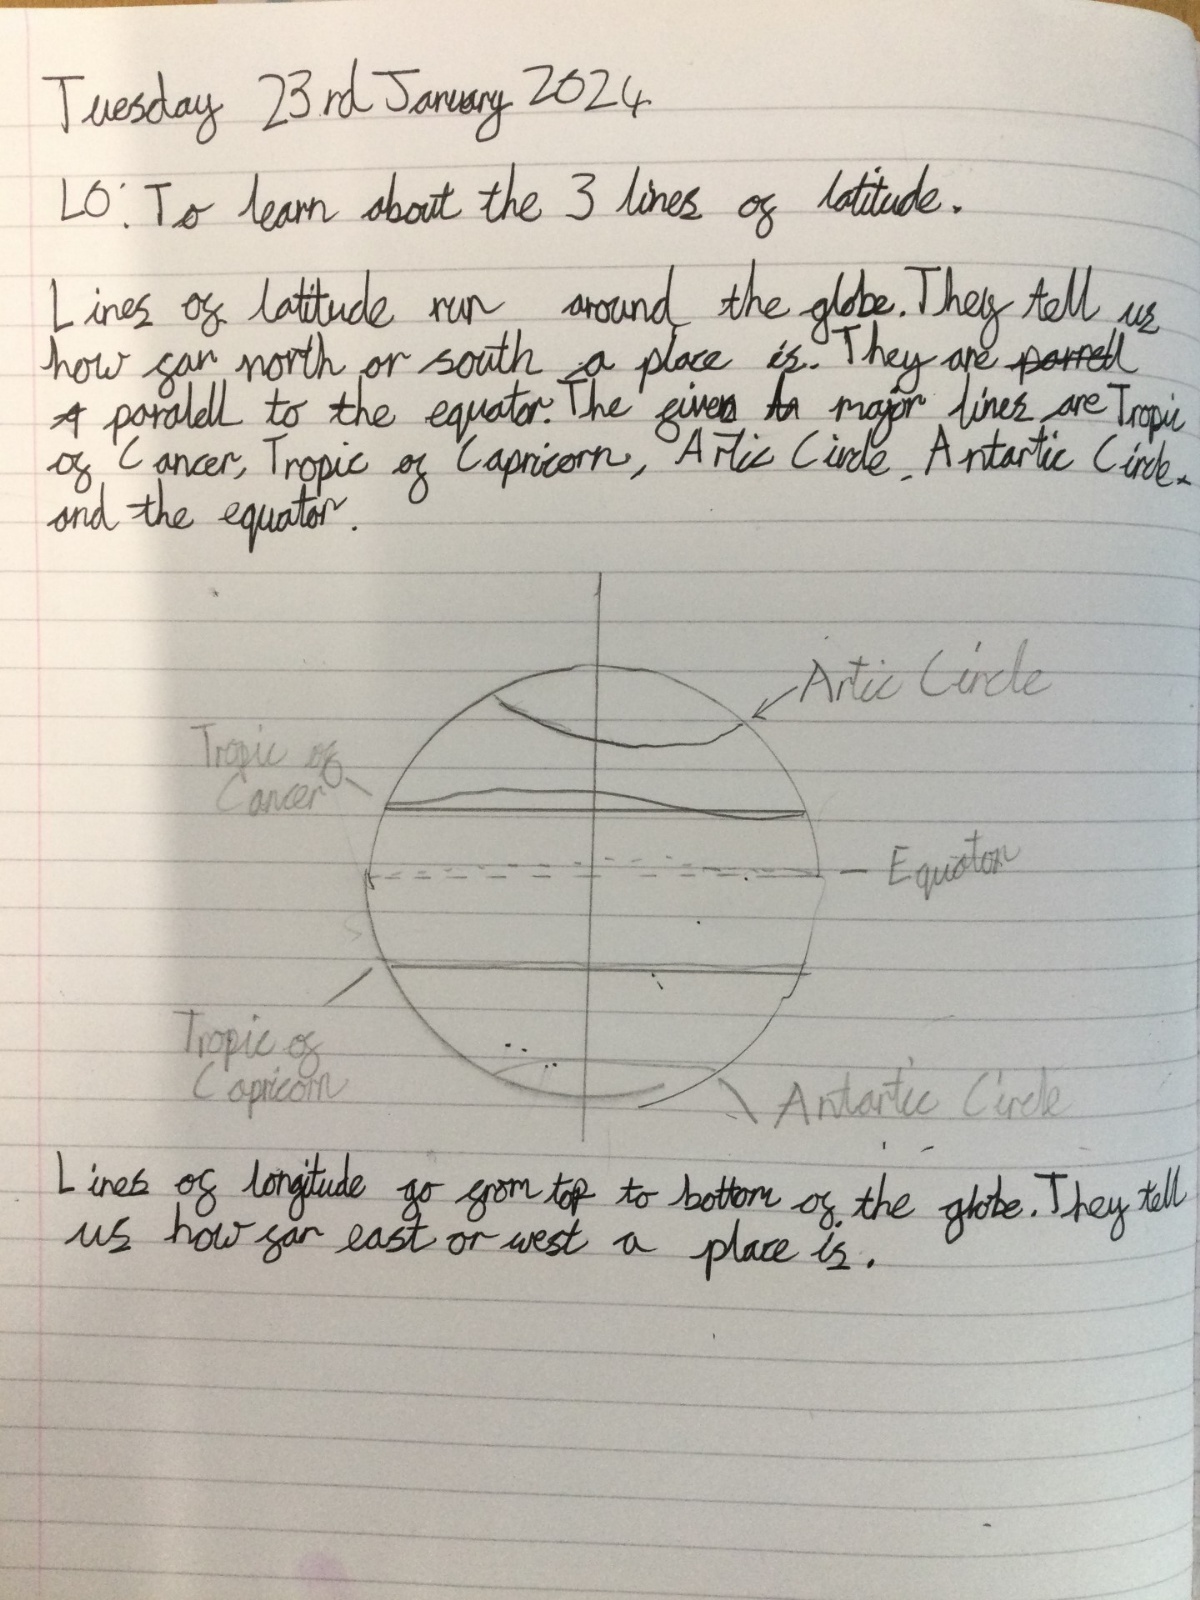 Tuesday 23rd January 2024
LO: To learn about the 3 lines of latitude.
Lines of latitude run around the globe. They tell us
how far north or south a place is. They are
paralell to the equator. The given major lines are Tropic
of Cancer, Tropic of Capricorn, Artic Circle, Antartic Circle,
and the equator.
Artic Circle
Tropic of
Cancer
Equator
Tropic of
Capricorn
Antartic Circle
Lines of longitude go from top to bottom of the globe. They tell
us how far east or west a place is.